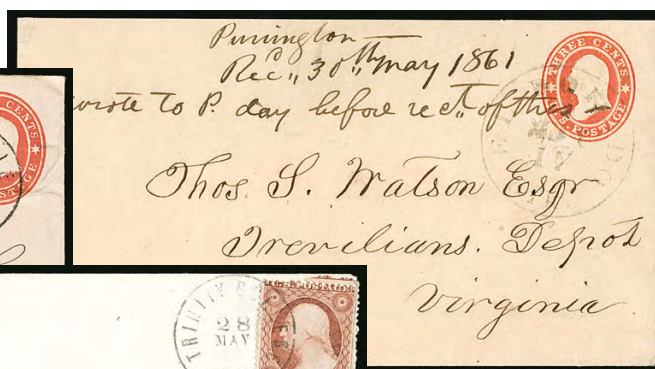 Purington
Recd,, 30th May 1861
wrote to P. day before rect,, of this
THREE CENTS
U.S. POSTAGE
Thos S. Watson Esqr
Trevilians. Depot
Virginia
CENTS
TRINITY
28
MAY